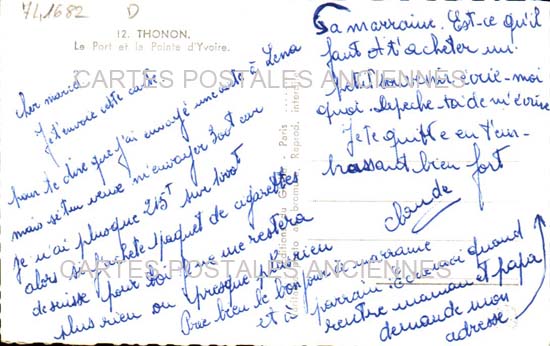 74,1682 D
12. THONON.
Le Port et la Pointe d'Yvoire.
CARTES POSTALES ANCIENNES
cher
Je t'envoie cette carte
pour te dire que j'ai envoyé une carte à Lena
mais si tu veux m'envoyer 300t car
Je n'ai plus que 215t sur 1000t
alors si j'achète 1 paquet de cigarettes
de suisse pour toi que me restera
plus rien ou presque plus rien
Dac bien le bonjour à marraine
et à parrain ici
CARTES POSTALES ANCIENNES
Sa marraine. Est-ce qu'il
faut t'acheter un
petit écrie-moi
quoi. depeche-toi de m'écrire
Je te quitte en t'em-
brassant bien fort
Claude
quand
rentre maman et papa
demande mon
adresse